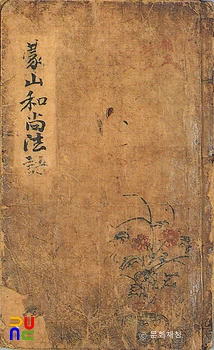 蒙山和尚法語
© 문화재청